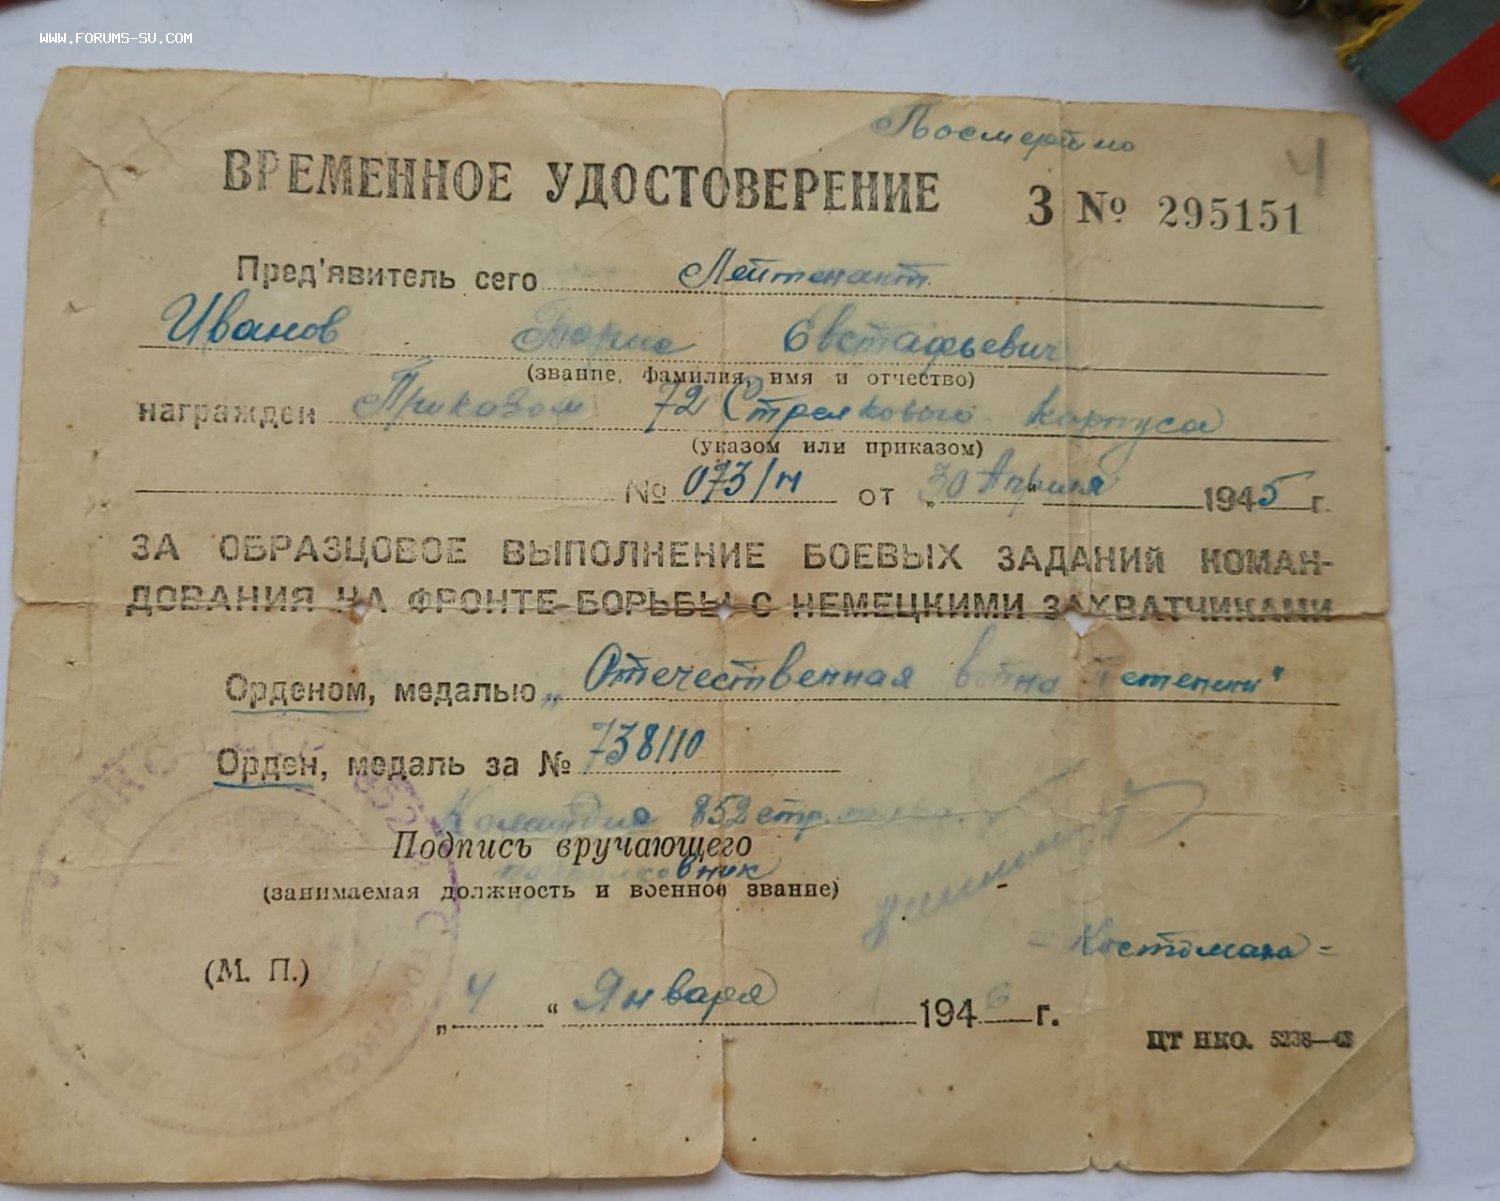 WWW.FORUMS-SU.COM
Посмертно
4
ВРЕМЕННОЕ УДОСТОВЕРЕНИЕ З № 295151
Пред'явитель сего Лейтенант
Иванов Борис Евстафьевич
(звание, фамилия, имя и отчество)
награжден Приказом 72 Стрелкового Корпуса
(указом или приказом)
№ 073/н от „30 Апреля 1945 г.
ЗА ОБРАЗЦОВОЕ ВЫПОЛНЕНИЕ БОЕВЫХ ЗАДАНИЙ КОМАН-
ДОВАНИЯ НА ФРОНТЕ БОРЬБЫ С НЕМЕЦКИМИ ЗАХВАТЧИКАМИ
Орденом, медалью „Отечественная война степени"
Орден, медаль за № 738110
852 стр.
Подпись вручающего
подполковник
(занимаемая должность и военное звание)
= Костомаха =
(М. П.)
„4“ Января 1946 г.
ЦТ НКО. 5238—